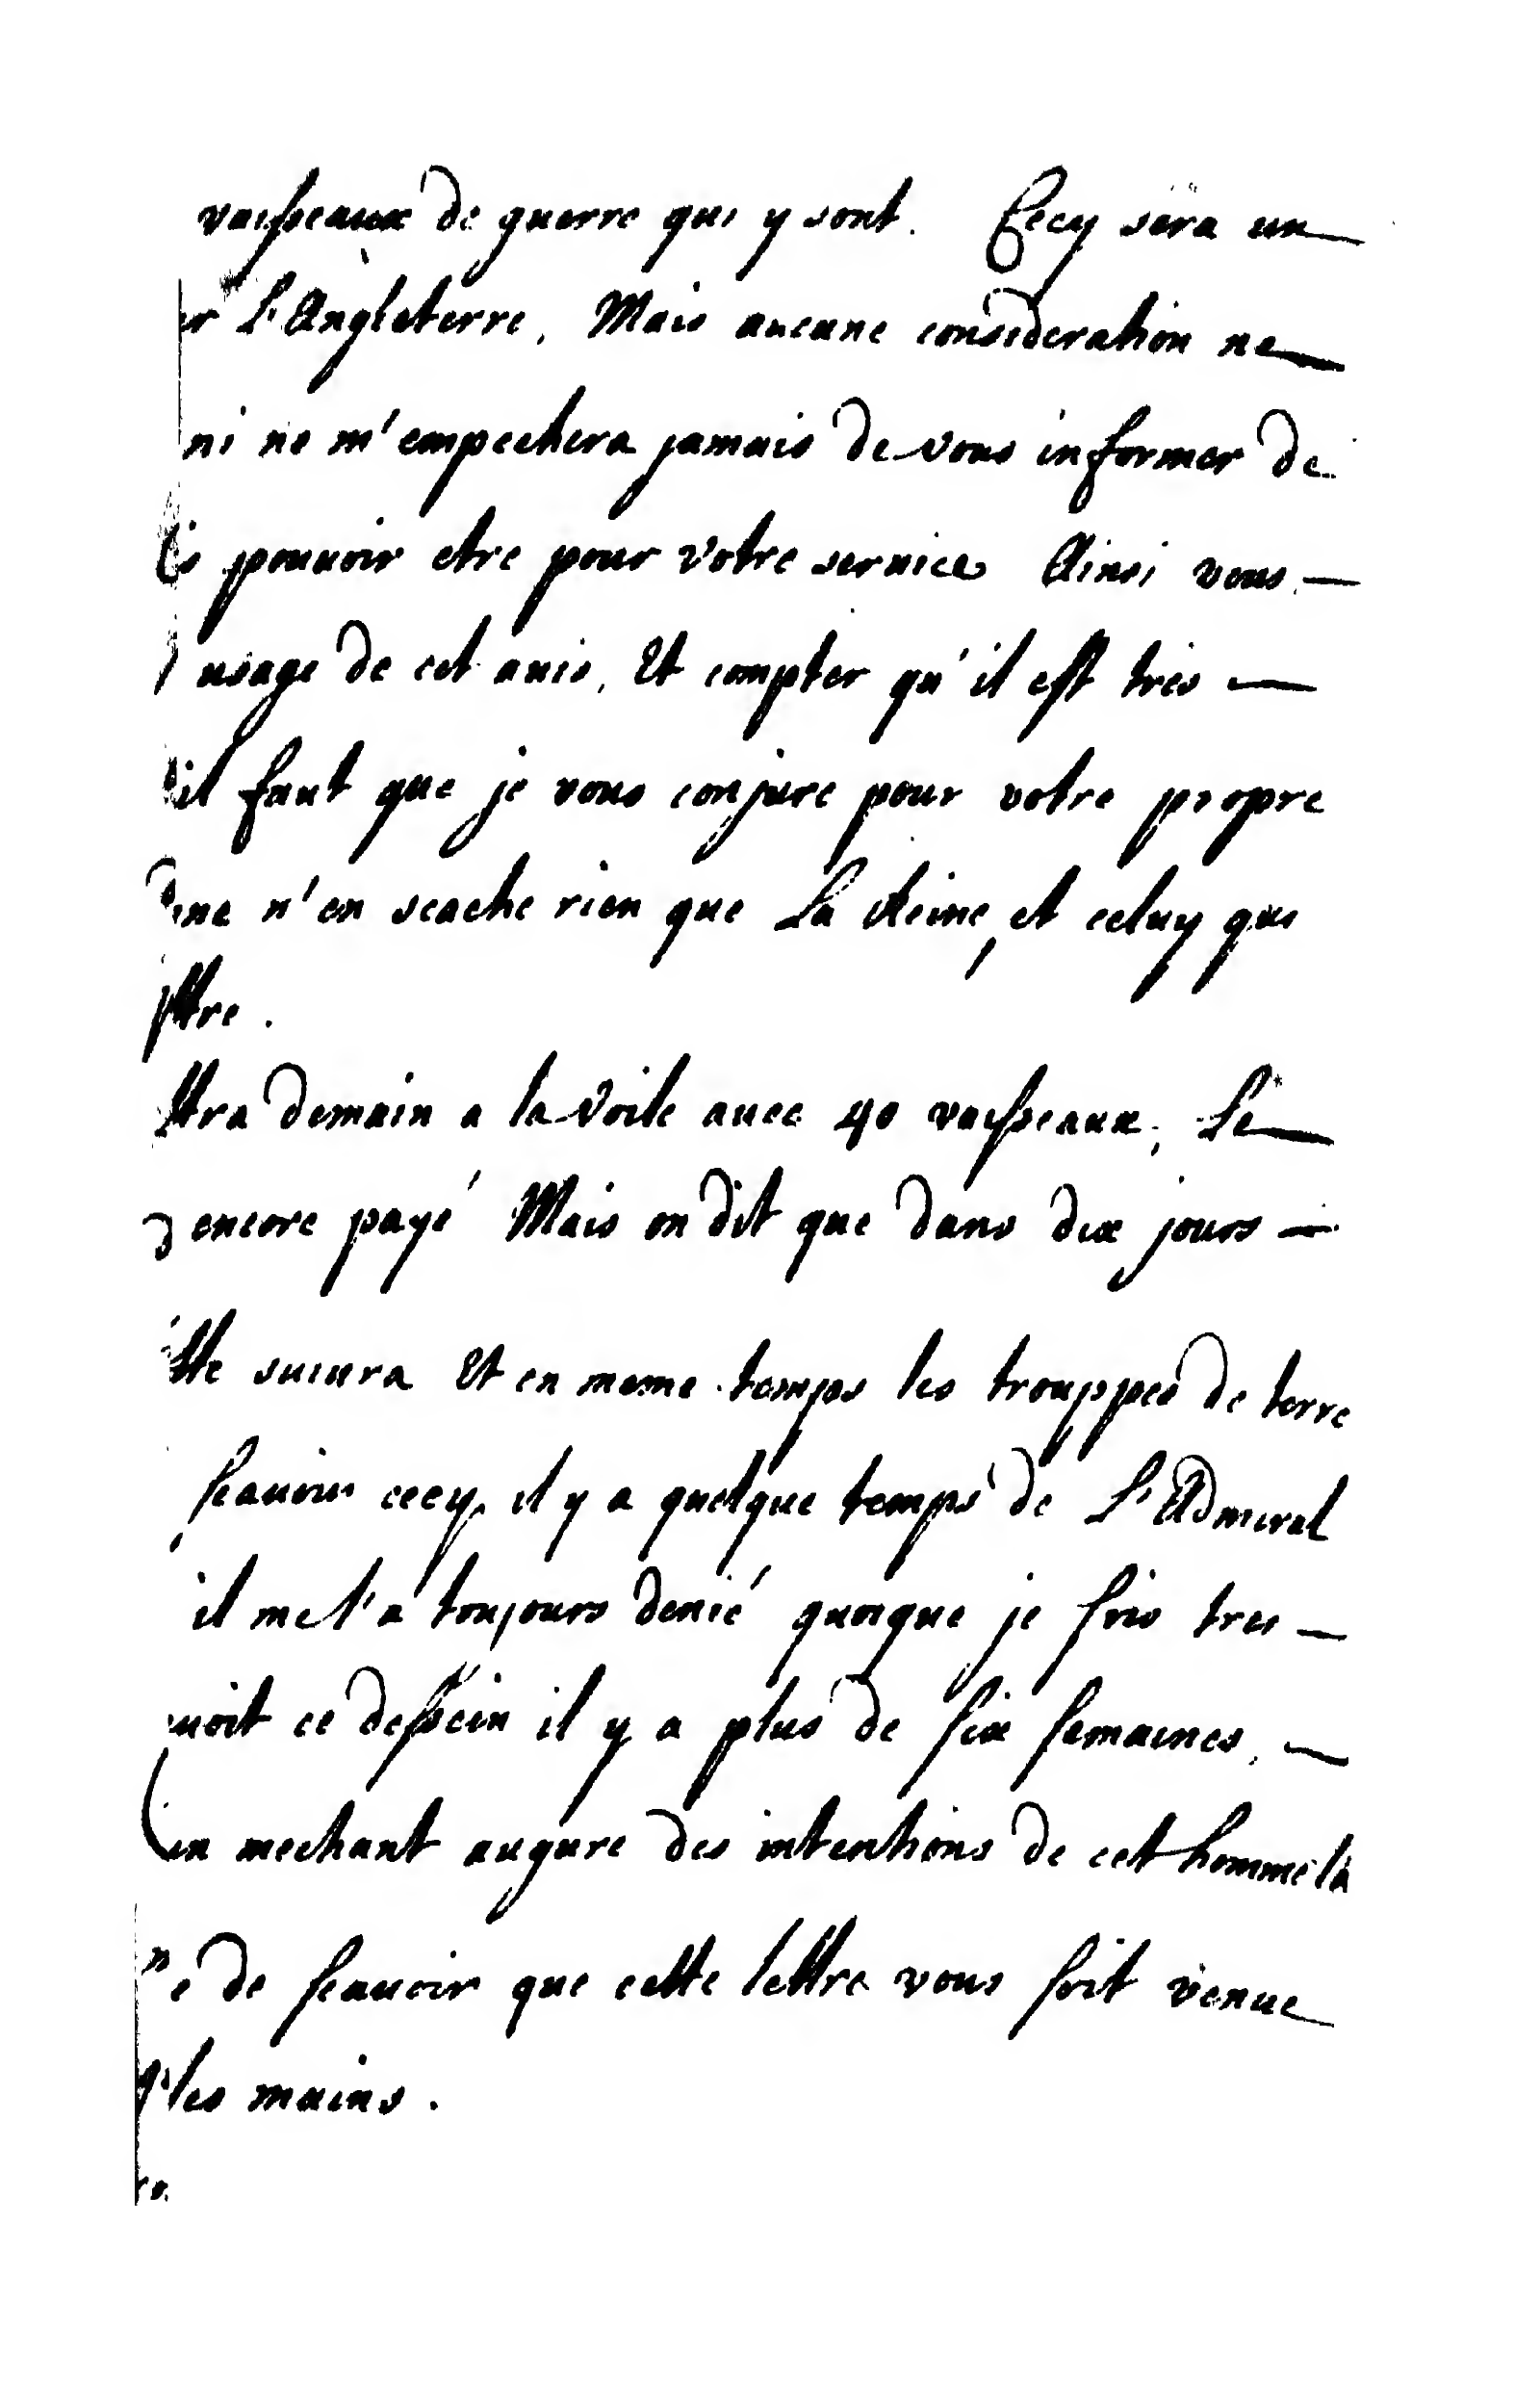 vaisseaux de guerre qui y sont. Cecy sera un
r L'Angleterre, Mais aucune consideration ne
ni ne m'empechera jamais de vous informer de
is pouuoir etre pour votre seruice Ainsi vous
usage de cet auis, Et compter qu'il est tres
il faut que je vous conjure pour votre propre
ne n'en scache rien que La Reine, et celuy qui
ttre.
ttra demain a la Voile auec 40 vaisseaux, Le
encore payé Mais on dit que dans dix jours
tte suiura Et en meme temps les trouppes de terre
scauoir cecy il y a quelque temps de L'Admiral
il me l'a toujours denié quoique je sois tres
uoit ce dessein il y a plus de six semaines,
un mechant augure des intentions de cet homme là
e de scauoir que cette lettre vous soit venue
les mains.